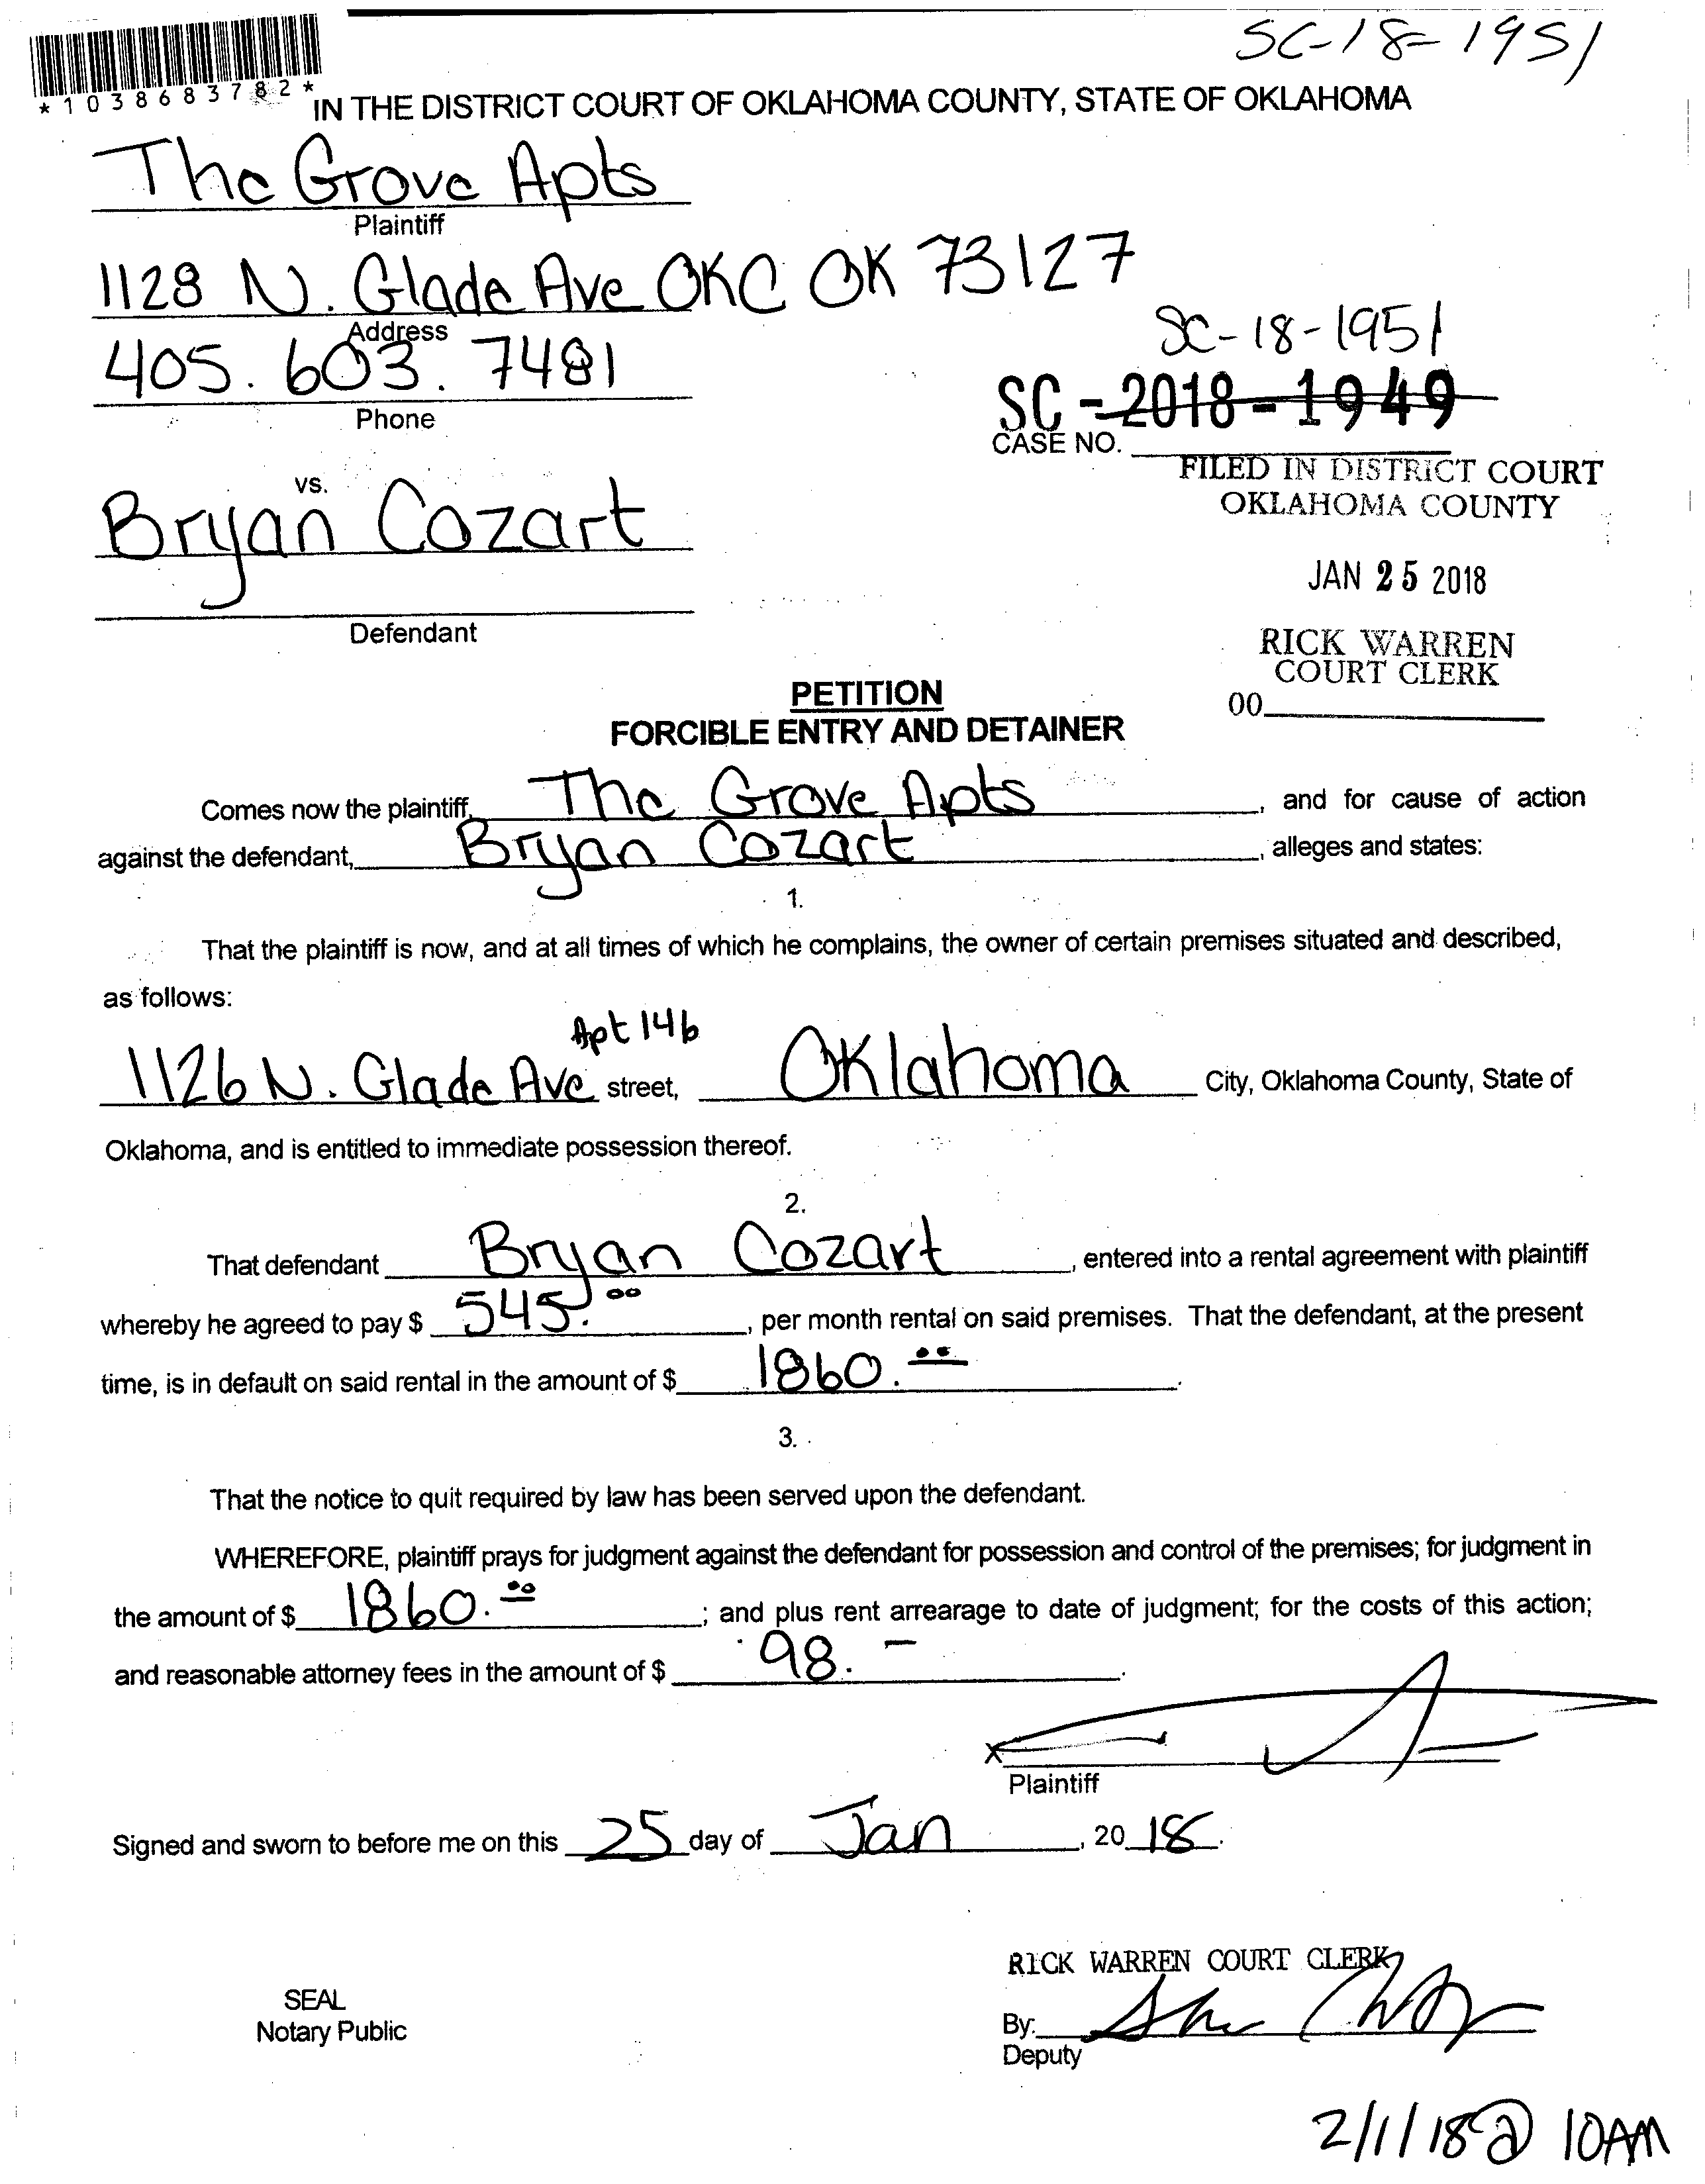 SC-18-1951
*1038683782*
IN THE DISTRICT COURT OF OKLAHOMA COUNTY, STATE OF OKLAHOMA
The Grove Apts
Plaintiff
1128 N. Glade Ave OKC OK 73127
Address
405. 603. 7481
Phone
SC-18-1951
SC-2018-1949
CASE NO.
FILED IN DISTRICT COURT
OKLAHOMA COUNTY
vs.
Bryan Cozart
JAN 25 2018
Defendant
RICK WARREN
COURT CLERK
00
PETITION
FORCIBLE ENTRY AND DETAINER
Comes now the plaintiff, The Grove Apts, and for cause of action
against the defendant, Bryan Cozart, alleges and states:
1.
That the plaintiff is now, and at all times of which he complains, the owner of certain premises situated and described,
as follows:
Apt 146
1126 N. Glade Ave street, Oklahoma City, Oklahoma County, State of
Oklahoma, and is entitled to immediate possession thereof.
2.
That defendant Bryan Cozart, entered into a rental agreement with plaintiff
whereby he agreed to pay $ 545.00, per month rental on said premises. That the defendant, at the present
time, is in default on said rental in the amount of $ 1860.00.
3.
That the notice to quit required by law has been served upon the defendant.
WHEREFORE, plaintiff prays for judgment against the defendant for possession and control of the premises; for judgment in
the amount of $ 1860.00; and plus rent arrearage to date of judgment; for the costs of this action;
and reasonable attorney fees in the amount of $ 98.-.
x
Plaintiff
Signed and sworn to before me on this 25 day of Jan, 20 18.
RICK WARREN COURT CLERK
SEAL
Notary Public
By:
Deputy
2/1/18 @ 10AM